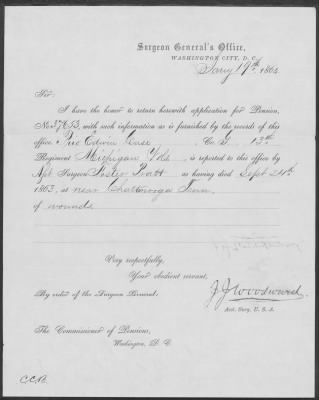 Surgeon General's Office,
WASHINGTON CITY, D. C.
Jany 19th 1864
Sir:
I have the honor to return herewith application for Pension,
No. 37653, with such information as is furnished by the records of this
office. Edwin Co. G. 13th
Regiment Michigan Vols is reported to this office by
Ast Surgeon Foster Pratt as having died Sept 24th
1863, at near Chattanooga Tenn
of wounds
Very respectfully,
Your obedient servant,
By order of the Surgeon General:
J. J. Woodward
Asst. Surg. U. S. A.
The Commissioner of Pensions,
Washington, D. C.